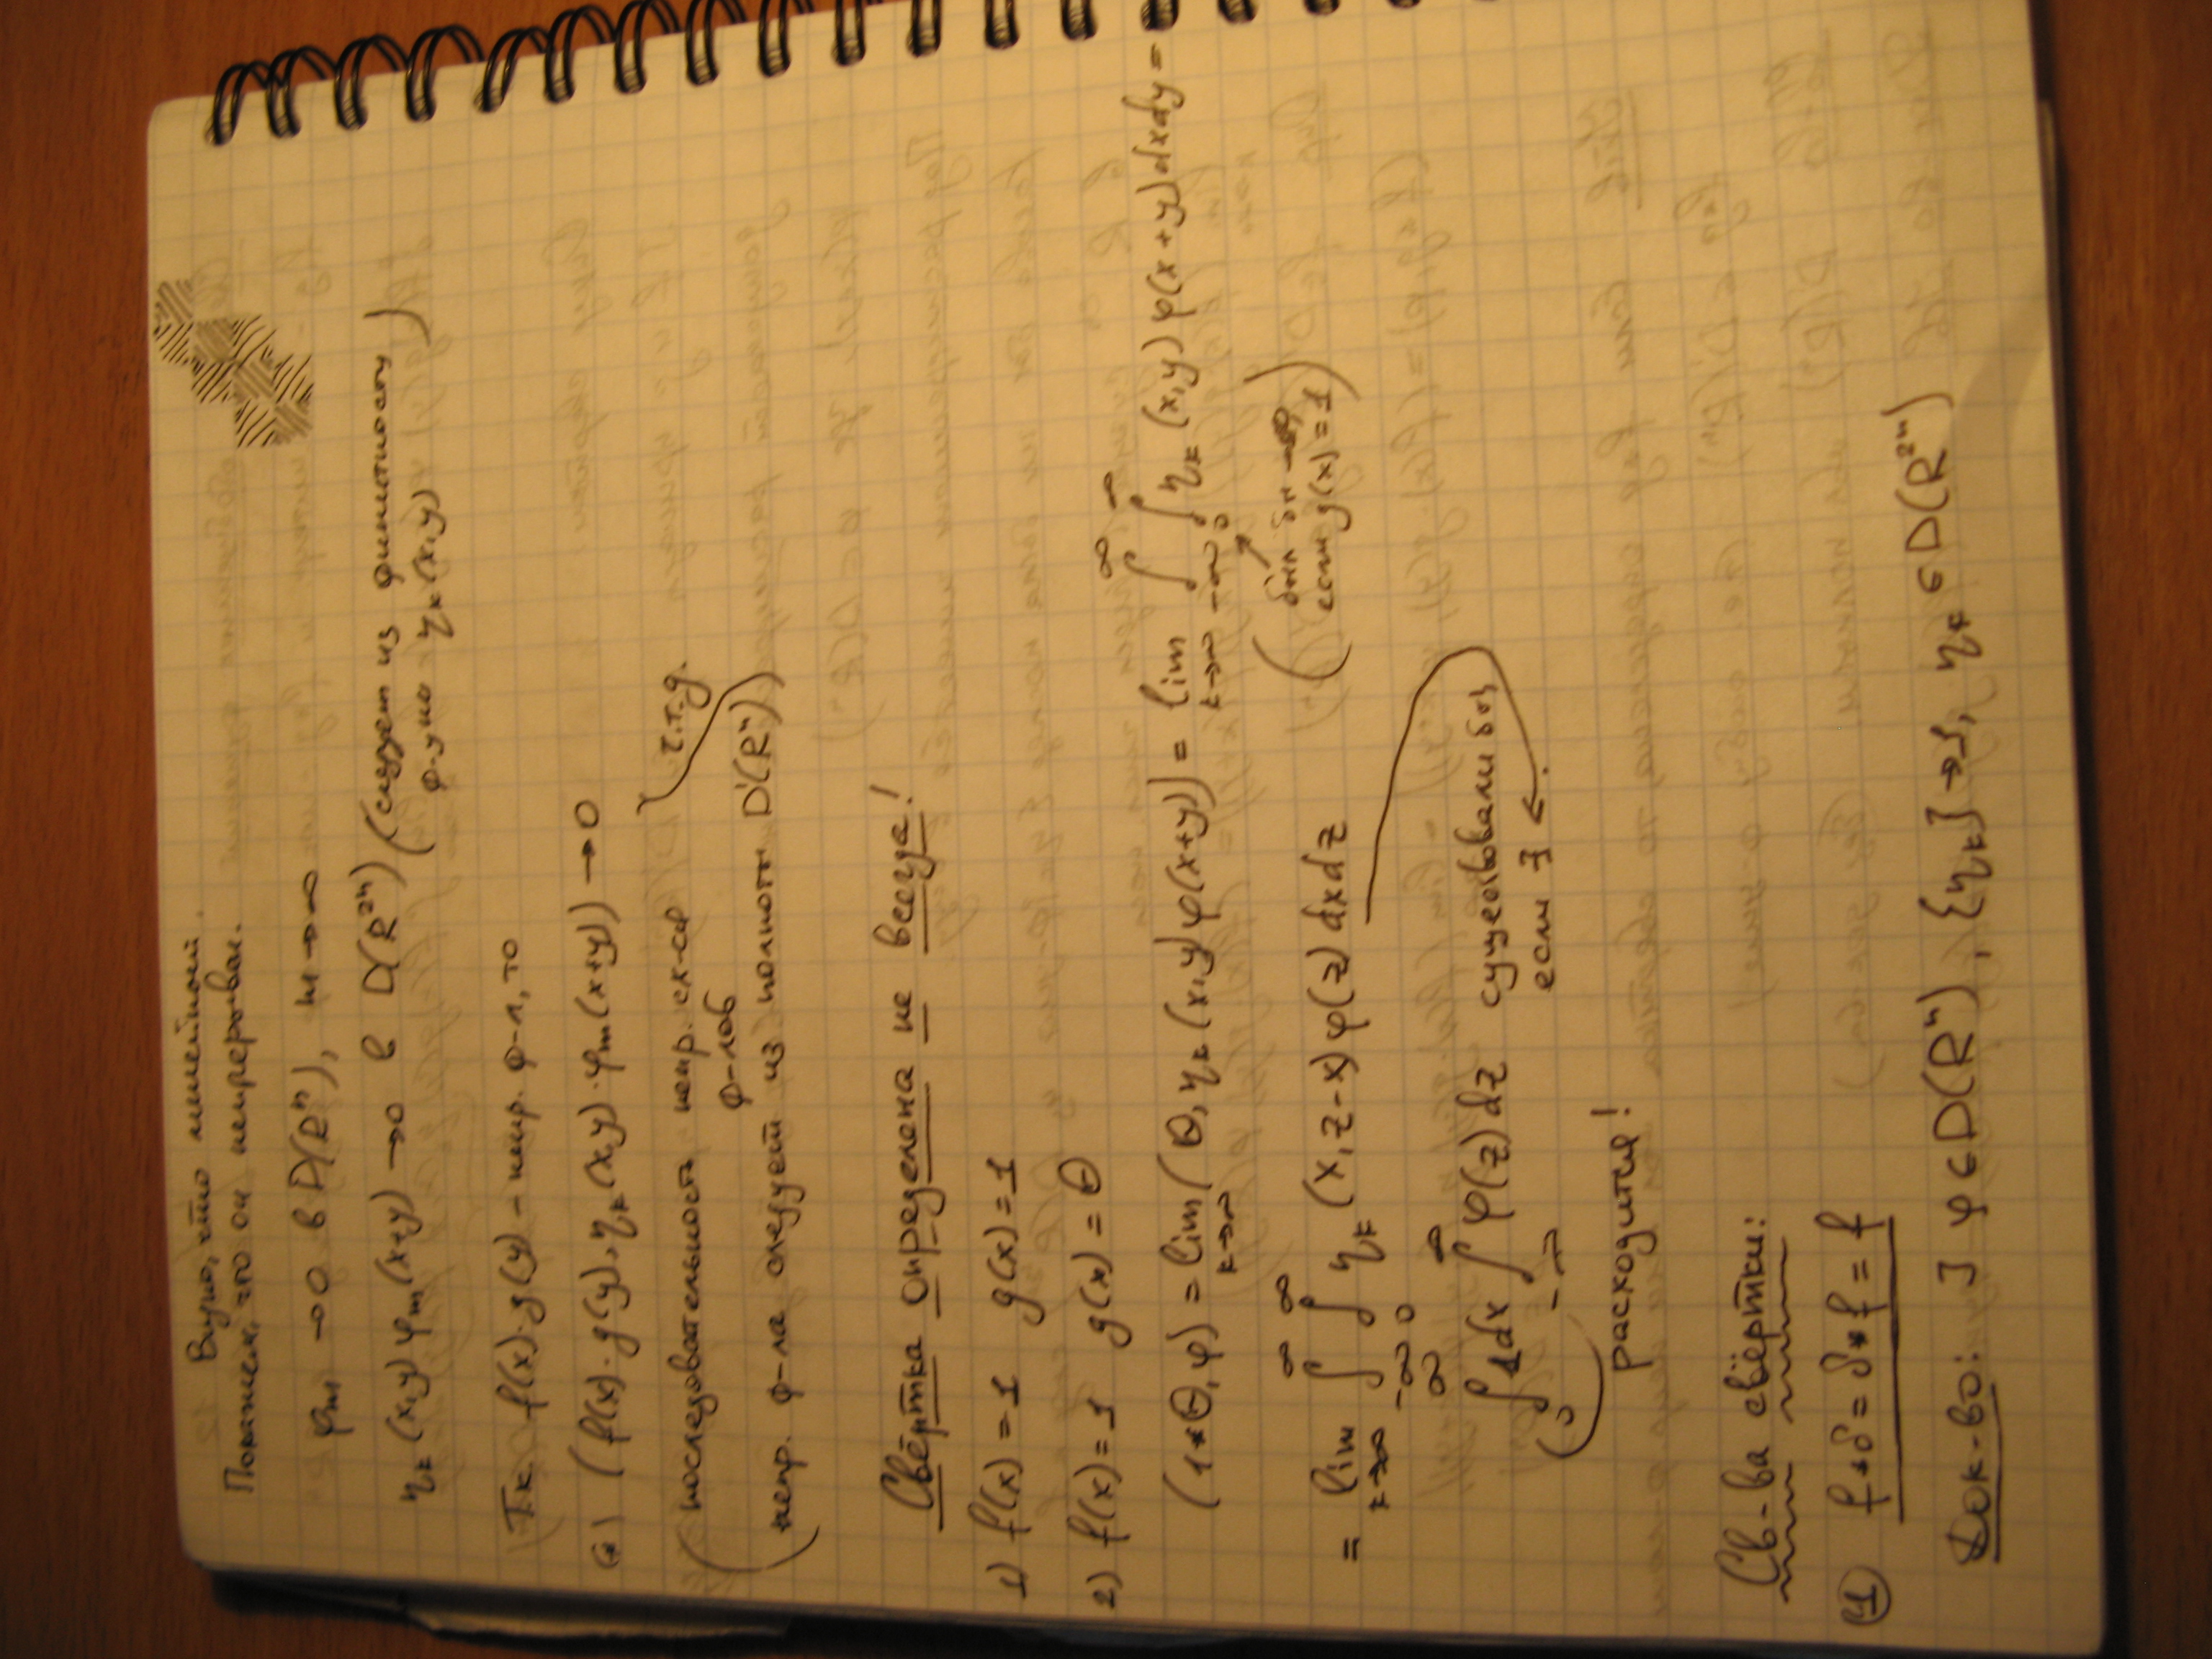 Видно, что линейный.
Покажем, что он непрерывен.
φₘ → 0 в D(Rⁿ), m → ∞
ηₖ(x,y)φₘ(x+y) → 0 в D(R²ⁿ) (следует из финитности
ф-ции ηₖ(x,y))
Т.к. f(x)·g(y) – непр. ф-л, то
(f(x)·g(y), ηₖ(x,y)·φₘ(x+y)) → 0
(последовательность непр. сх-ся ч.т.д.
ф-лов
непр. ф-ла следует из полноты D'(Rⁿ))
Свёртка определена не всегда!
1) f(x) = 1 g(x) = 1
2) f(x) = 1 g(x) = θ
(1*θ, φ) = lim k→∞ (θ, ηₖ(x,y)φ(x+y)) = lim k→∞ ∫_{-∞}^{∞} ∫_0^∞ ηₖ(x,y)φ(x+y)dxdy =
(был бы -∞,
если g(x) = 1)
= lim k→∞ ∫_{-∞}^{∞} ∫_0^∞ ηₖ(x, z-x)φ(z)dxdz
(∫1dx ∫φ(z)dz существовали бы,
если ∃
расходится!
Св-ва свёртки:
① f*δ = δ*f = f
Док-во: ] φ ∈ D(Rⁿ), {ηₖ} → 1, ηₖ ∈ D(R²ⁿ)